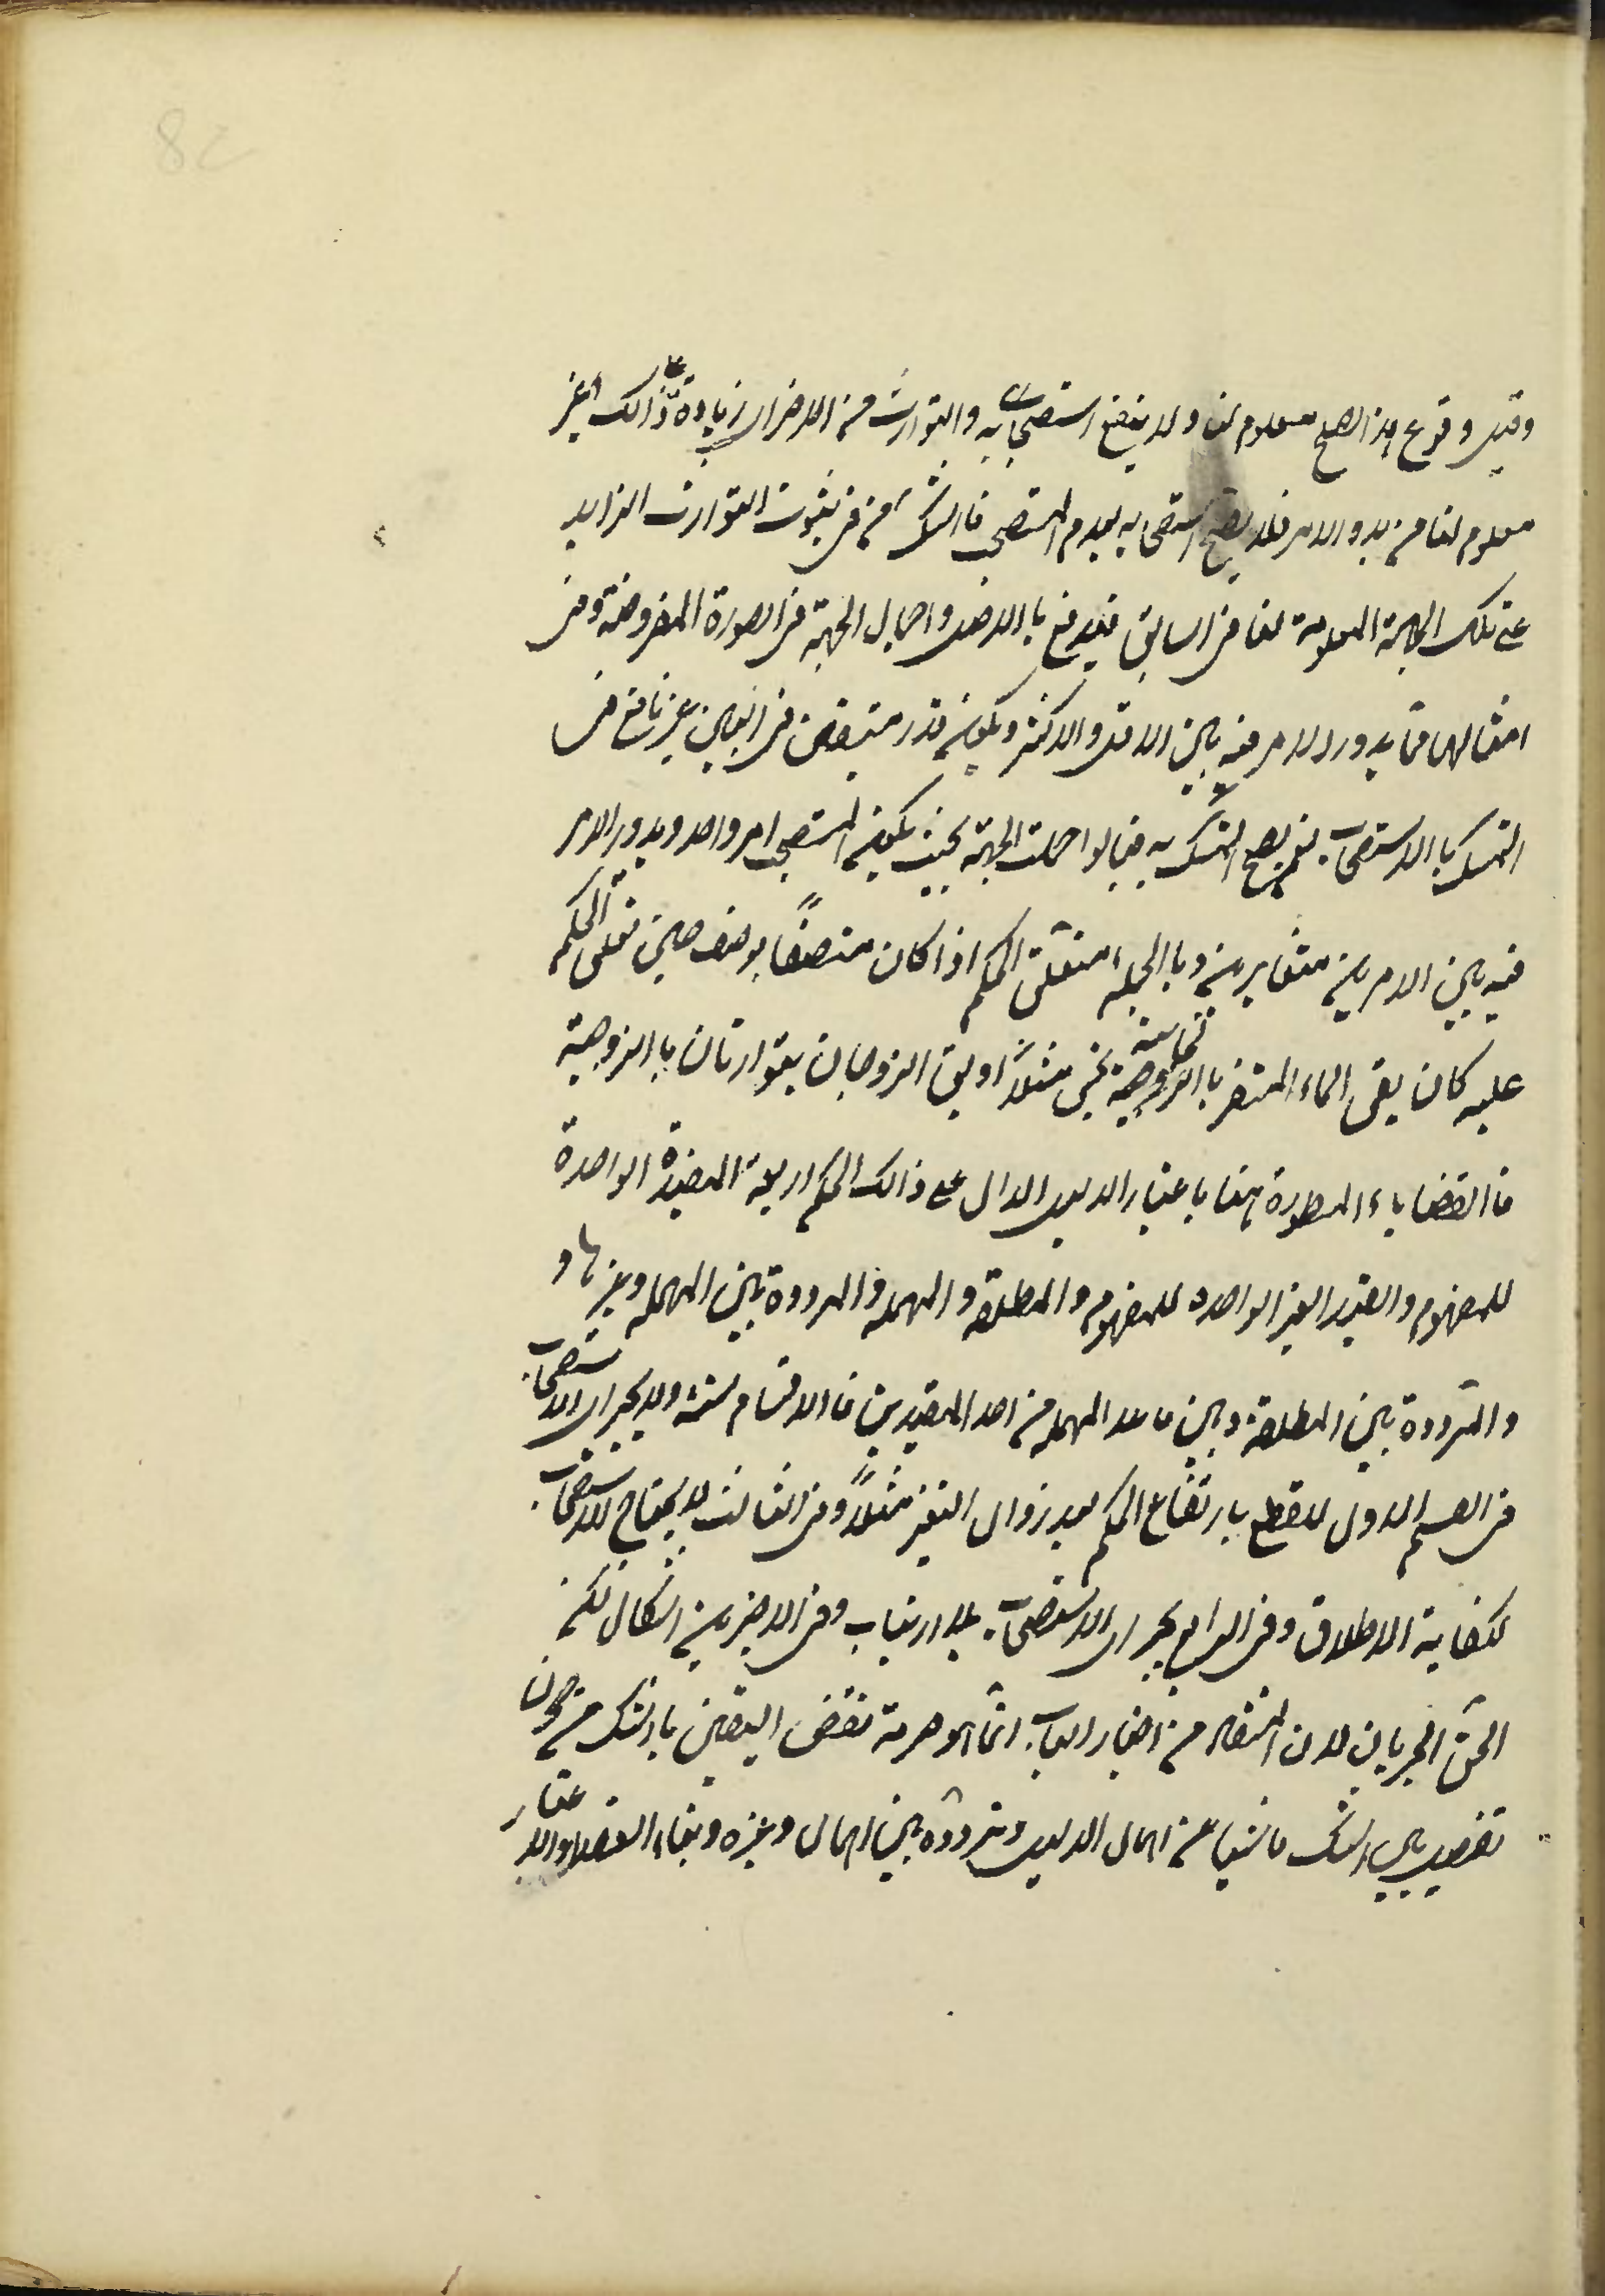 وقبل وقوع هذا الصلح معلوم لنا ولا ينفع استصحابه والتوارث من الاخران زيادة على ذالك غير
معلوم لنا من بدو الامر فلا يصح استصحابه لعدم المستصحب فالشك في ثبوت التوارث الزايد
على تلك الجهة المعلومة لنا في السابق فيدفع بالاصل واجمال الجهة في الصورة المفروضة وفي
امثالها مما يدور الامر فيه بين الاقل والاكثر ويكون قدر متيقن في البين غير نافع في
التمسك بالاستصحاب نعم يصح التمسك به فيما لو اجملت الجهة بحيث يكون المستصحب امر واحد ويدور الامر
فيه بين الامرين متغايرين وبالجملة متعلق الحكم اذا كان متصفًا بوصف حين تعلق الحكم
عليه كان يقى الماء المتغير بالنجاسة نجس مثلًا او يق الزوجان يتوارثان بالزوجية
فالقضاياء المطورة هنا باعتبار الدليل الدال على ذالك الحكم اربعة المقيدة الواحدة
للمفهوم والقيد الغير الواحدة للمفهوم والمطلقة والمهملة والمرددة بين المهملة وغيرها و
والمترددة بين المطلقة وبين ما عد المهملة من احد المقيدين فالاقسام ستة ولا يجرى الاستصحاب
في القسم الاول للقطع بارتفاع الحكم بعد زوال التغير مثلًا وفي الثالث لا يحتاج للاستصحاب
لكفاية الاطلاق وفي الرابع يجرى الاستصحاب بلا ارتياب وفي الاخيرين اشكال لكن
الحق الجريان لان المستفاد من اخبار الباب انما هو حرمة نقض اليقين بالشك من دون
تفصيل بين الشك ناشيا عن اهمال الدليل وتردده بين اهمال وغيره وبناء العقلاء والاعتبار